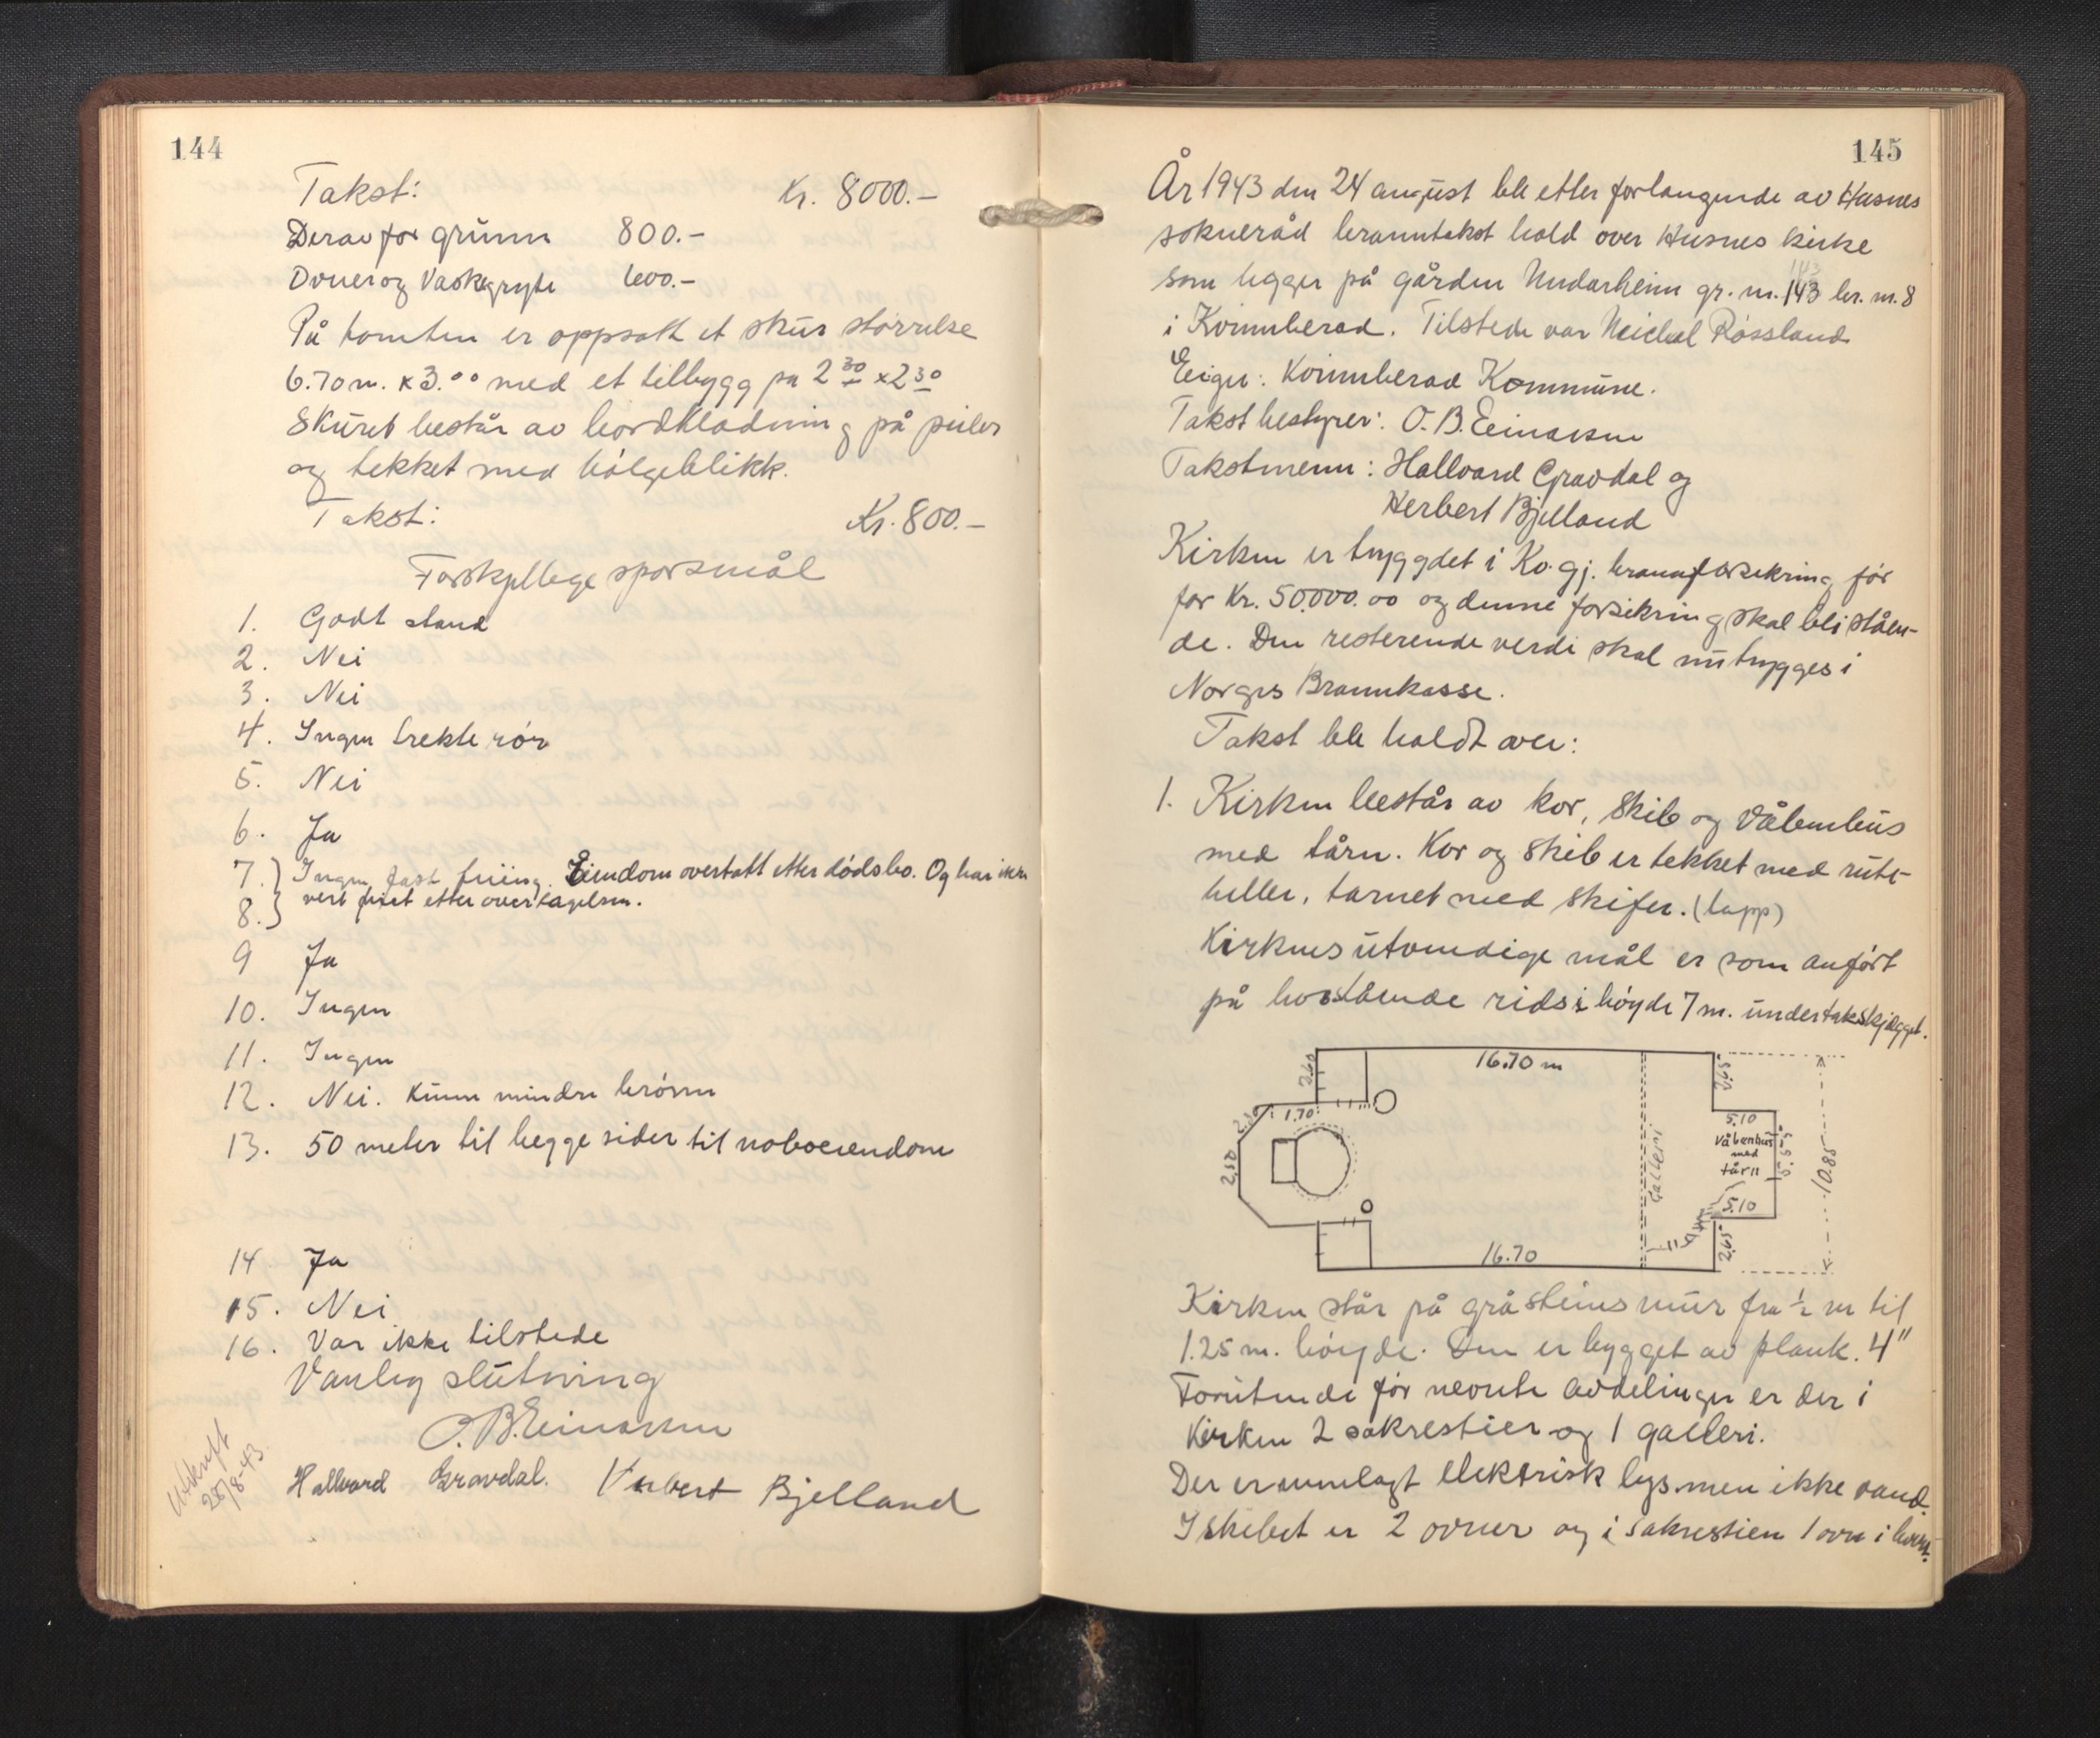 144
Takst: Kr. 8000.-
Derav for grunn 800.-
Ovner og Vaskegryte 600.-
På tomten er oppsatt et skur størrelse
6.70 m. x 3.00 med et tilbygg på 2 30 x 2 30
Skuret består av bordkledning på piler
og tekket med bølgeblikk.
Takst: Kr. 800.-
Forskjellige spørsmål
1. Godt stand
2. Nei
3. Nei
4. Ingen trekte rør
5. Nei
6. Ja
7. } Ingen fast feiing. Eiendom overtatt etter dødsbo. Og har ikke
8. } vert feiet etter overtagelsen.
9 Ja
10. Ingen
11. Ingen
12. Nei. Kunn mindre brønn
13. 50 meter til begge sider til naboeiendom
14. Ja
15. Nei
16. Var ikke tilstede
Vanleg slutning
O. B. Einarsen
Hallvard Gravdal. Herbert Bjelland
Utskrift
28/8-43.
145
År 1943 den 24 august ble etter forlangende av Husnes
sokneråd branntakst hold over Husnes kirke
som ligger på gården Undarheim gr. nr. 143 br. nr. 8
143
i Kvinnherad. Tilstede var Meickel Røssland
Eiger: Kvinnherad Kommune.
Takstbestyrer: O. B. Einarsen
Takstmenn: Hallvard Gravdal og
Herbert Bjelland
Kirken er tryggdet i Ko. gj. brannforsekring før
for Kr. 50.000.00 og denne forsikring skal bli ståen-
de. Den resterende verdi skal nu trygges i
Norges Brannkasse.
Takst ble holdt over:
1. Kirken består av kor, skib og Våbenhus
med tårn. Kor og skib er tekket med rute-
heller, tarnet med skifer. (lapp)
Kirkens utvendige mål er som anført
på hosstående rids i høyde 7 m. under takskjægget.
2.60
16.70 m
2.65
1.70
2.10
2.50
5.10
Våbenhus
med
tårn
5.55
5.10
Galleri
10.85
2.65
16.70
Kirken står på gråsteinsmur fra ½ m til
1.25 m. høyde. Den er bygget av plank. 4"
Forutende før nevnte avdelinger er der i
Kirken 2 sakrestier og 1 galleri.
Der er innelagt elektrisk lys men ikke vand.
I skibet er 2 ovner og i sakrestien 1 ovn i hver.